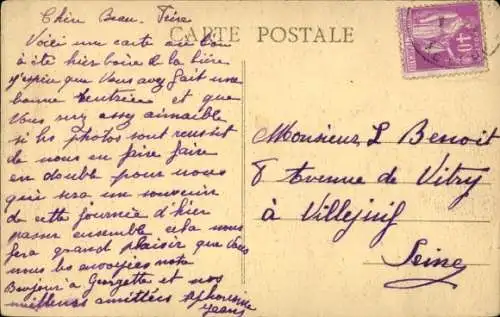 Cher Beau-Frère
CARTE POSTALE
Voilà une carte ou l'on
à été hier boire de la bière
j'espère que Vous avez fait une
bonne rentrée et que
Vous serez assez aimable
si les photos sont reussit
de nous en faire faire
en double pour nous
qui sera un souvenir
de cette journée d'hier
passer ensemble cela nous
fera grand plaisir que Vous
nous les envoyies
Bonjour à Georgette et nos
meilleures amittées Alphonsine
Jean
Monsieur L Benoit
8 Avenue de Vitry
à Villejuif
Seine